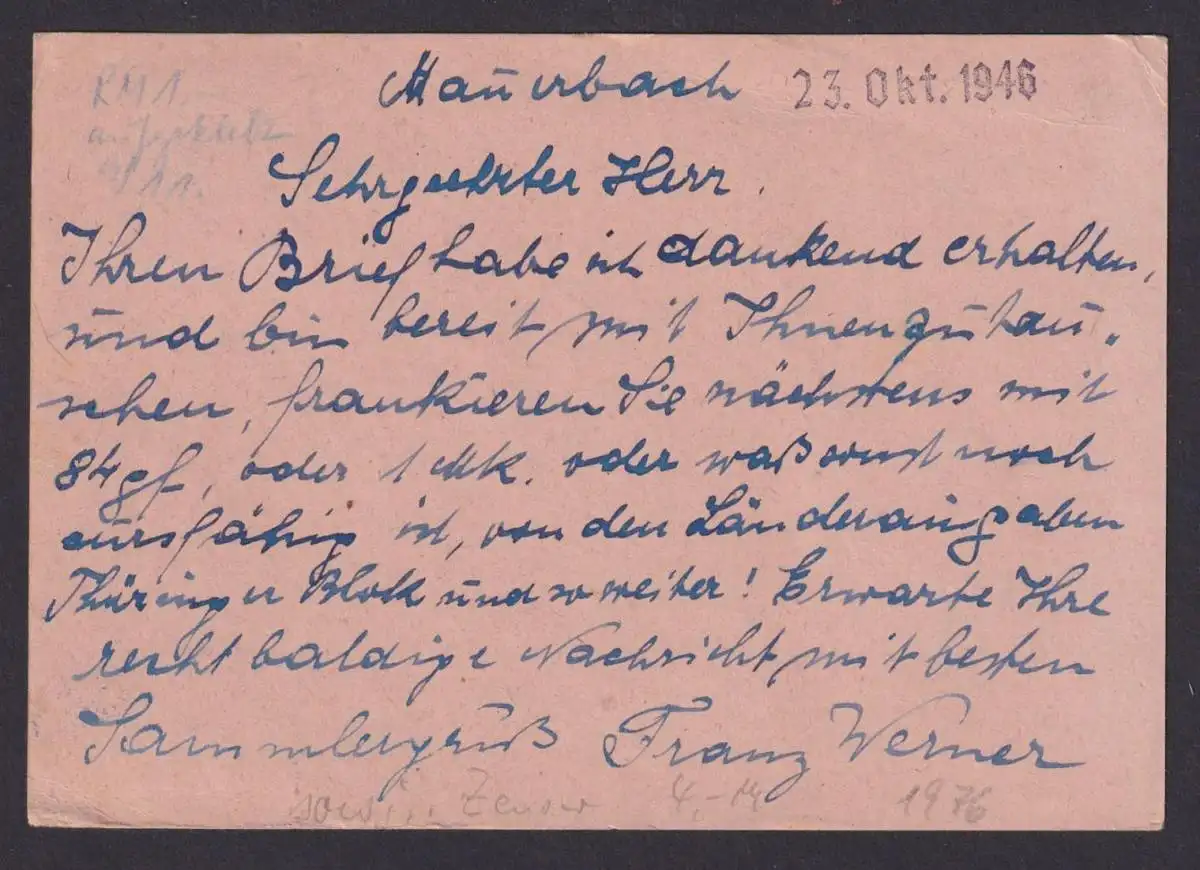 Mauerbach 23. Okt. 1946
RM 1
11.
Sehrgeehrter Herr.
Ihren Brief habe ich dankend erhalten,
und bin bereit mit Ihnen zu tau-
schen, frankieren Sie nächstens mit
84 gf, oder 1 Mk. oder waß sonst noch
ist, von den Länderausgaben
Thüringer Blok und so weiter! Erwarte Ihre
recht baldige Nachricht mit besten
Sammlergruß Franz Werner
4,- M 1976